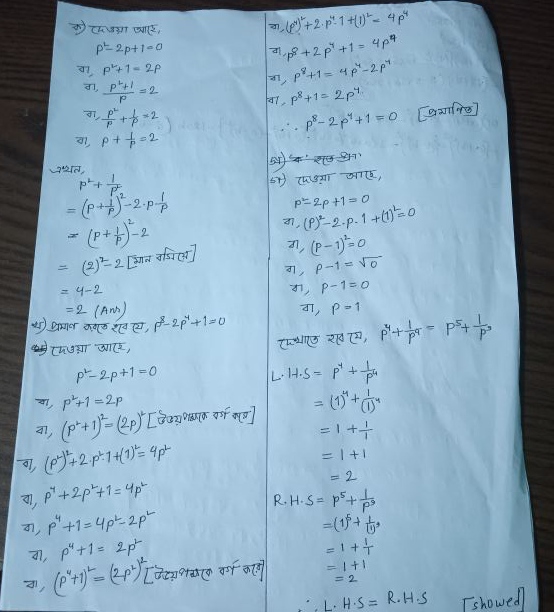 ক) দেওয়া আছে,
p²-2p+1=0
বা, p²+1=2p
বা, (p²+1)/p=2
বা, p²/p+1/p=2
বা, p+1/p=2
এখন,
p²+1/p²
=(p+1/p)²-2·p·1/p
=(p+1/p)²-2
=(2)²-2 [মান বসিয়ে]
=4-2
=2 (Ans)
খ) প্রমাণ করতে হবে যে, p⁸-2p⁴+1=0
দেওয়া আছে,
p²-2p+1=0
বা, p²+1=2p
বা, (p²+1)²=(2p)² [উভয়পক্ষকে বর্গ করে]
বা, (p²)²+2·p²·1+(1)²=4p²
বা, p⁴+2p²+1=4p²
বা, p⁴+1=4p²-2p²
বা, p⁴+1=2p²
বা, (p⁴+1)²=(2p²)² [উভয়পক্ষকে বর্গ করে]
বা, (p⁴)²+2·p⁴·1+(1)²=4p⁴
বা, p⁸+2p⁴+1=4p⁴
বা, p⁸+1=4p⁴-2p⁴
বা, p⁸+1=2p⁴
∴ p⁸-2p⁴+1=0 [প্রমাণিত]
গ) দেওয়া আছে,
p²-2p+1=0
বা, (p)²-2·p·1+(1)²=0
বা, (p-1)²=0
বা, p-1=√0
বা, p-1=0
বা, p=1
দেখাতে হবে যে, p⁴+1/p⁴=p⁵+1/p⁵
L.H.S=p⁴+1/p⁴
=(1)⁴+1/(1)⁴
=1+1/1
=1+1
=2
R.H.S=p⁵+1/p⁵
=(1)⁵+1/(1)⁵
=1+1/1
=1+1
=2
∴ L.H.S=R.H.S [showed]